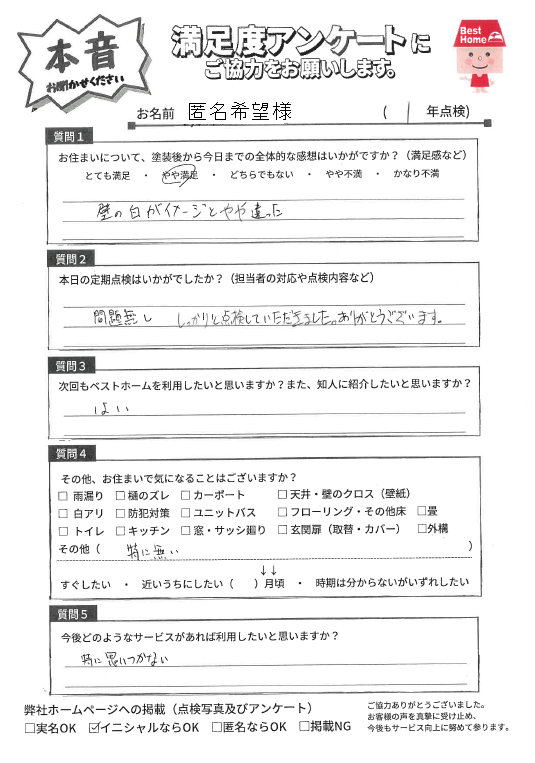 本音
お聞かせください
満足度アンケートに
ご協力をお願いします。
Best
Home
お名前 匿名希望様 ( 1 年点検)
質問1
お住まいについて、塗装後から今日までの全体的な感想はいかがですか？（満足感など）
とても満足 ・ やや満足 ・ どちらでもない ・ やや不満 ・ かなり不満
壁の白がイメージとやや違った
質問2
本日の定期点検はいかがでしたか？（担当者の対応や点検内容など）
問題無し しっかりと点検していただきました。ありがとうございます。
質問3
次回もベストホームを利用したいと思いますか？また、知人に紹介したいと思いますか？
はい
質問4
その他、お住まいで気になることはございますか？
□ 雨漏り □ 樋のズレ □ カーポート □ 天井・壁のクロス（壁紙）
□ 白アリ □ 防犯対策 □ ユニットバス □ フローリング・その他床 □畳
□ トイレ □ キッチン □ 窓・サッシ廻り □ 玄関扉（取替・カバー） □外構
その他（ 特に無い ）
↓↓
すぐしたい ・ 近いうちにしたい（ ）月頃 ・ 時期は分からないがいずれしたい
質問5
今後どのようなサービスがあれば利用したいと思いますか？
特に思いつかない
弊社ホームページへの掲載（点検写真及びアンケート）
□実名OK ☑イニシャルならOK □匿名ならOK □掲載NG
ご協力ありがとうございました。
お客様の声を真摯に受け止め、
今後もサービス向上に努めて参ります。